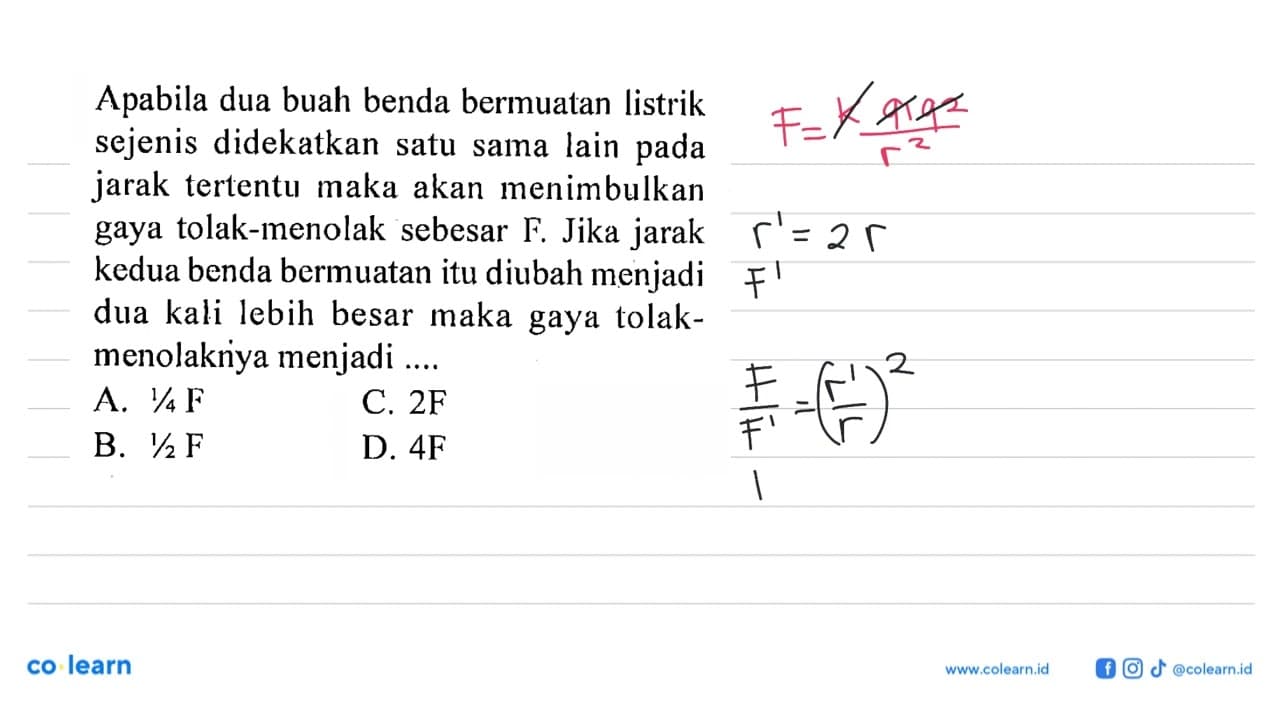 Apabila dua buah benda bermuatan listrik
sejenis didekatkan satu sama lain pada
jarak tertentu maka akan menimbulkan
gaya tolak-menolak sebesar F. Jika jarak
kedua benda bermuatan itu diubah menjadi
dua kali lebih besar maka gaya tolak-
menolaknya menjadi ....
A. ¼ F
C. 2F
B. ½ F
D. 4F
F = k q1 q2 / r²
r' = 2 r
F'
F / F' = (r' / r)²
1
co learn
www.colearn.id
@colearn.id